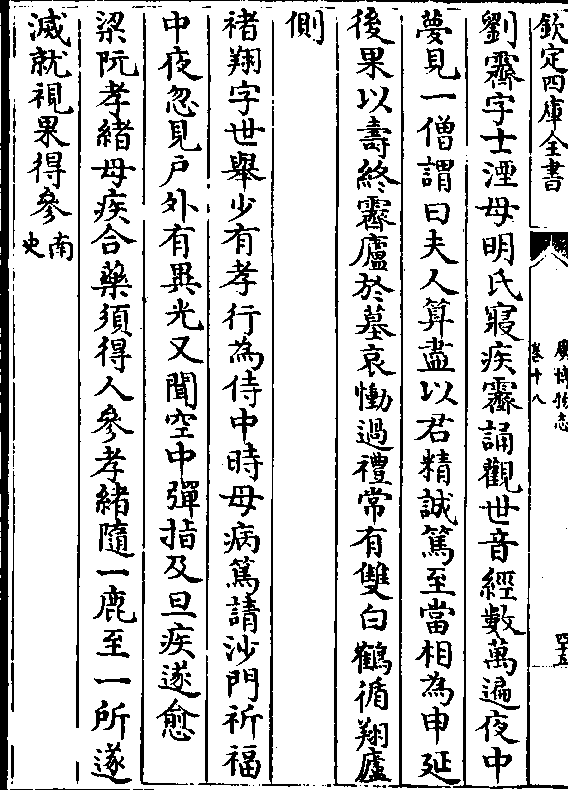 欽定四庫全書
廣博物志
卷十八
四十五
劉霽字士湮母明氏寢疾霽誦觀世音經數萬遍夜中
夢見一僧謂曰夫人算盡以君精誠篤至當相為申延
後果以壽終霽廬於墓哀慟過禮常有雙白鶴循翔廬
側
褚翔字世舉少有孝行為侍中時母病篤請沙門祈福
中夜忽見户外有異光又聞空中彈指及旦疾遂愈
梁阮孝緒母疾合藥須得人參孝緒隨一鹿至一所遂
滅就視果得參南史